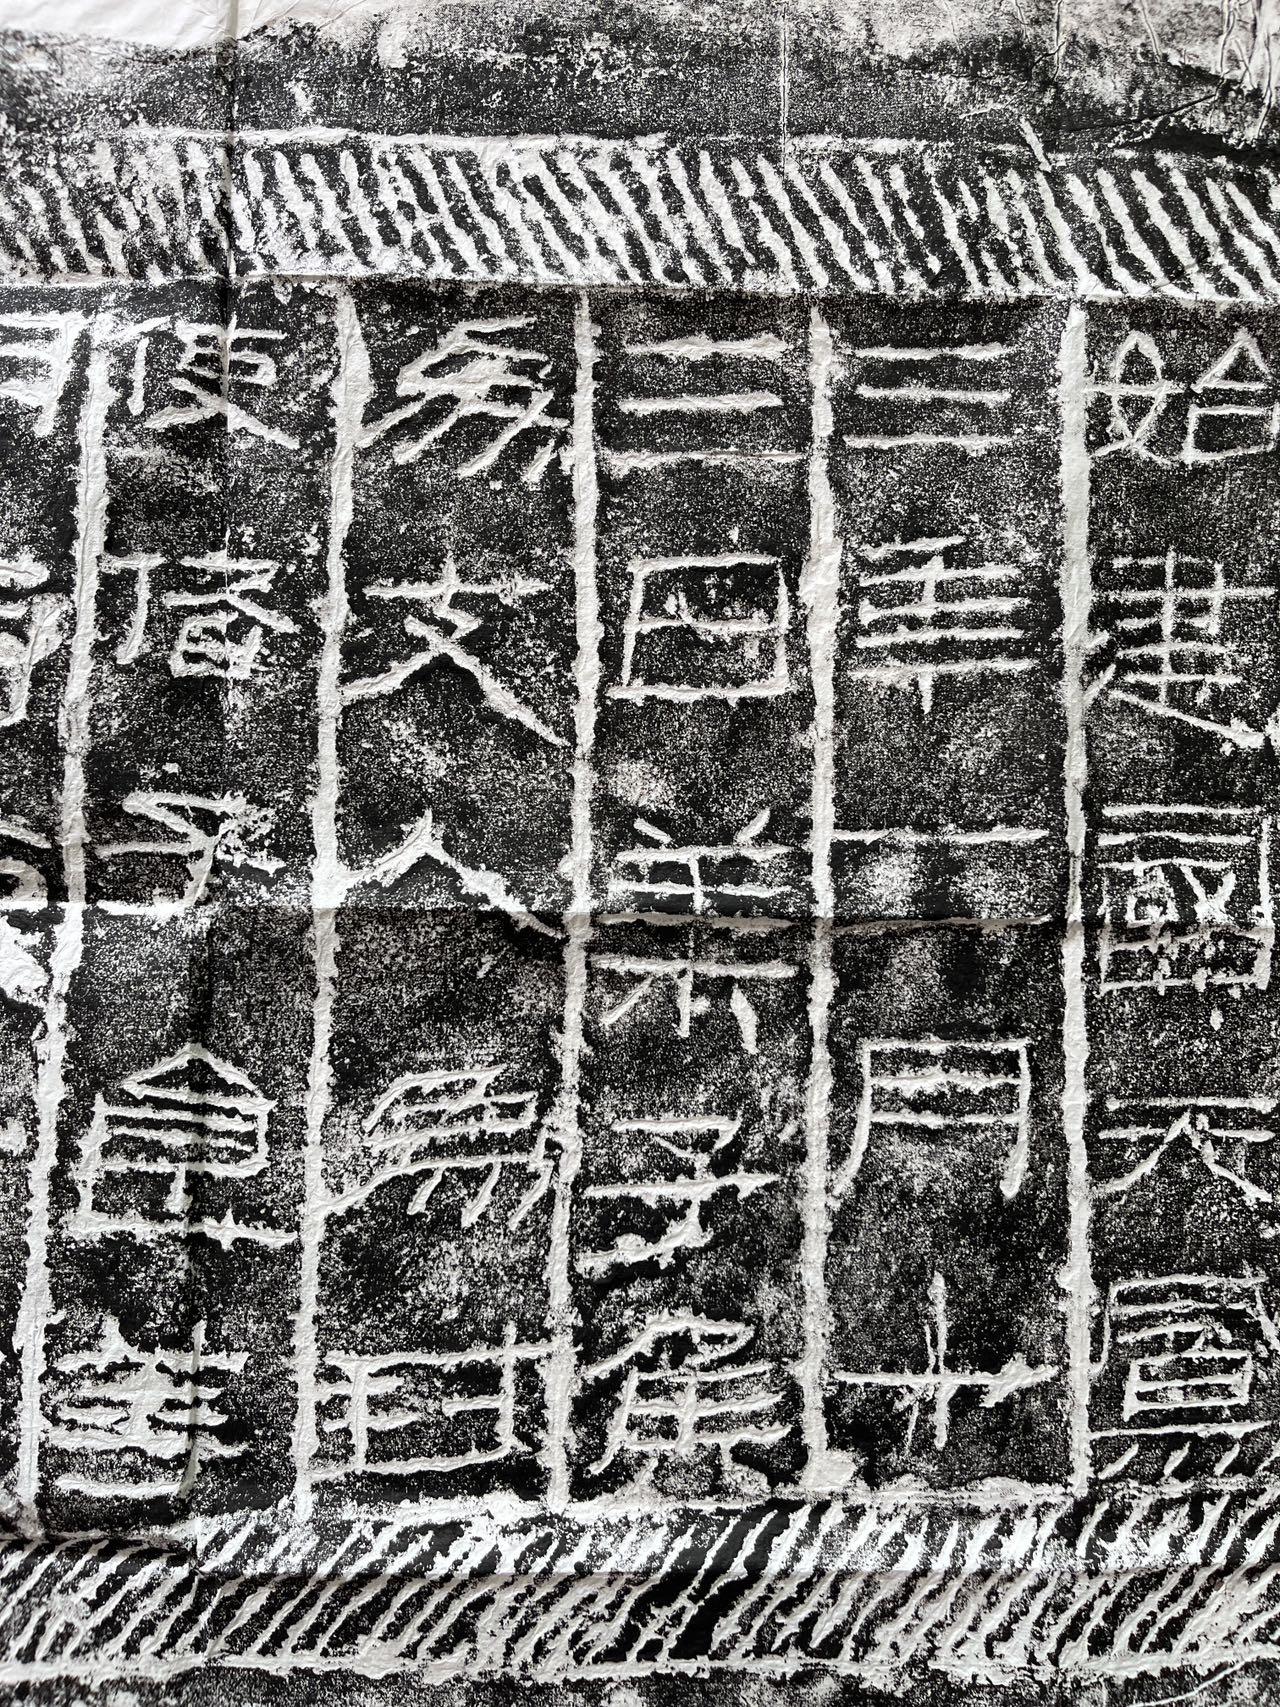 始建國天鳳
三年二月十
三日萊子侯
為支人為封
使偖子食等